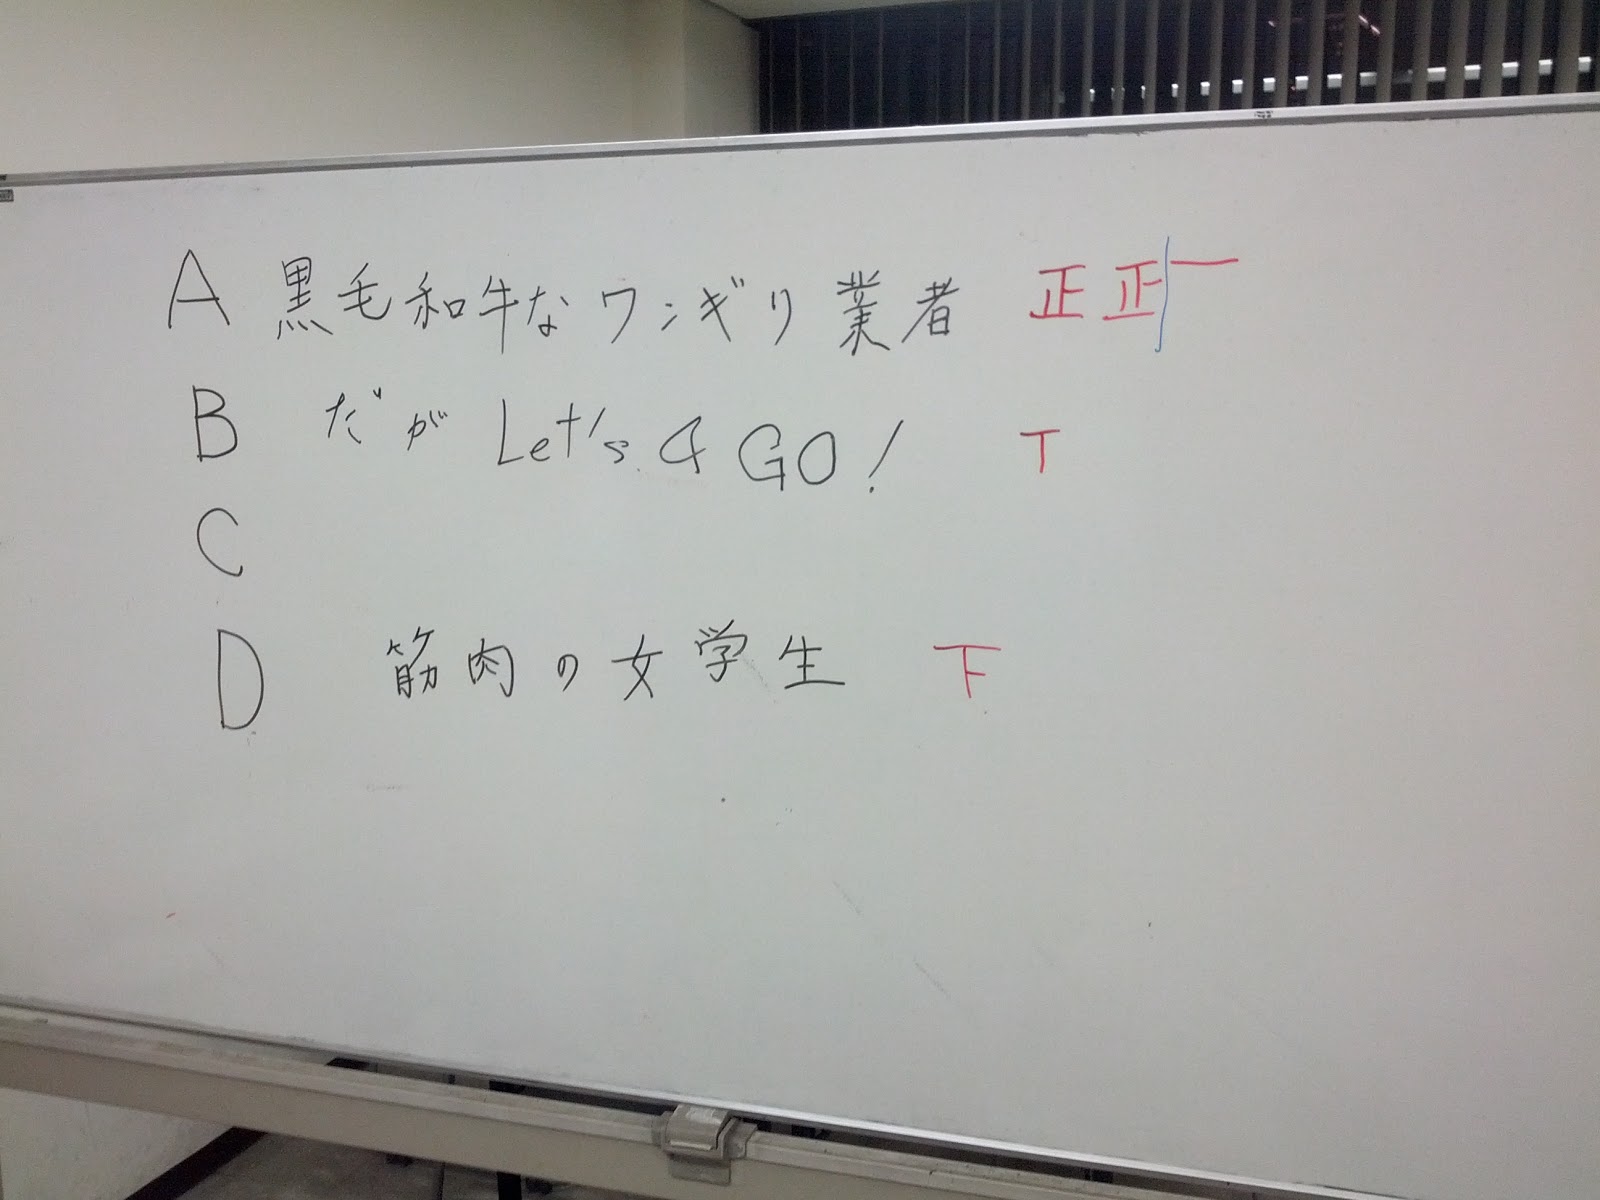 A 黒毛和牛なワシギリ業者 正正一
B だが Let's 4 GO! T
C
D 筋肉の女学生 下